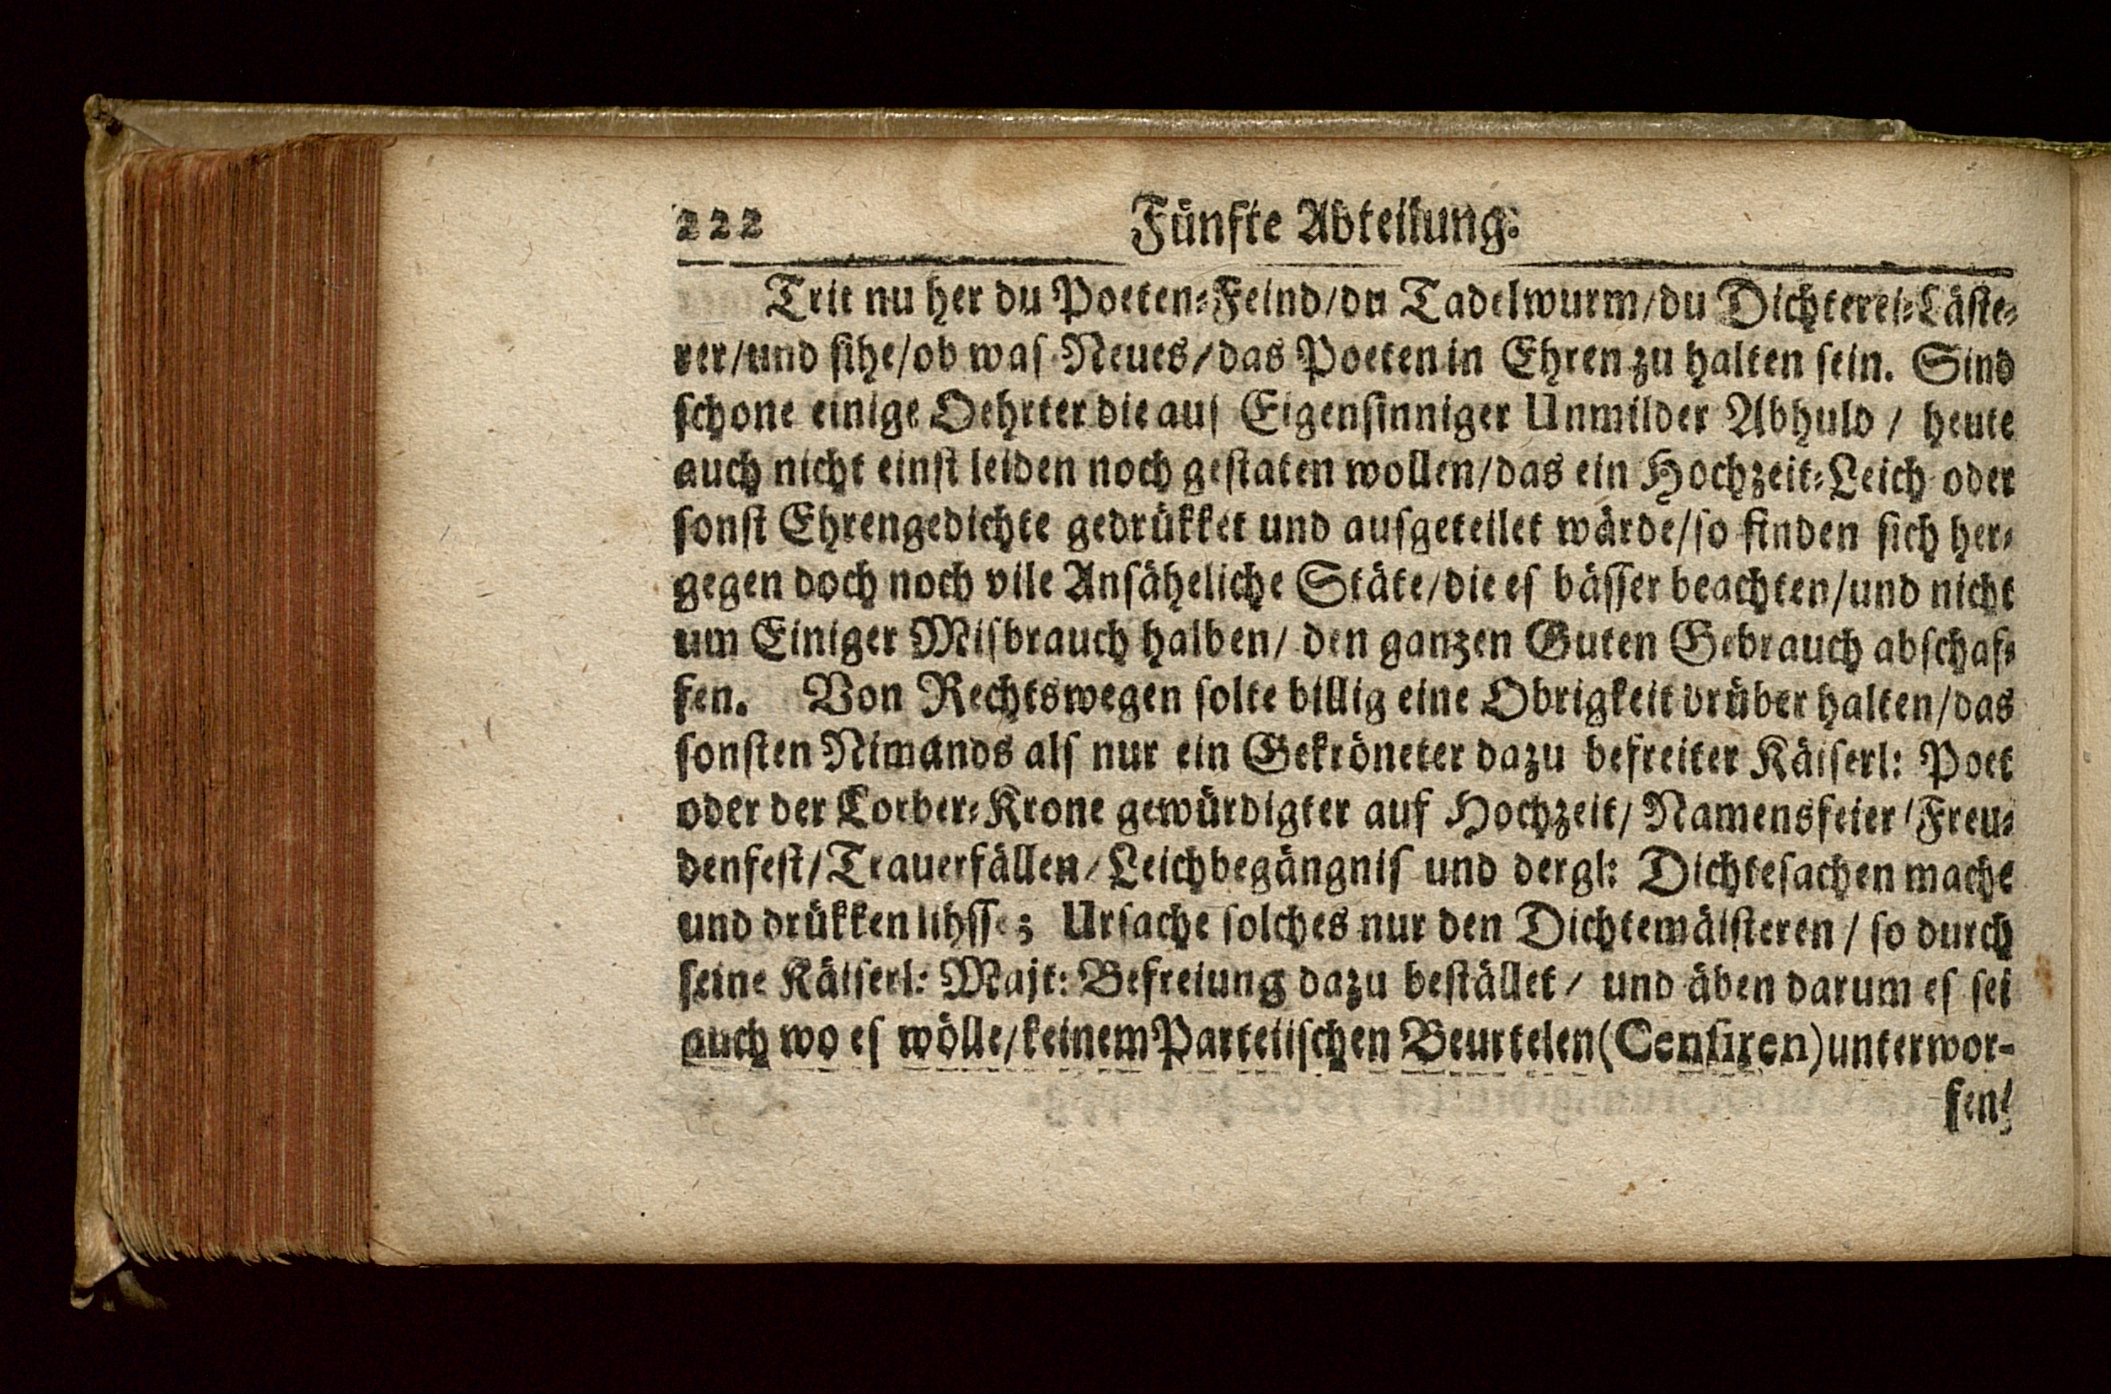 222 Fünfte Abteilung.
Trit nu her du Poeten-Feind/du Tadelwurm/du Dichterei-Läste-
rer/und sihe/ob was Neues/das Poeten in Ehren zu halten sein. Sind
schone einige Oehrter die aus Eigensinniger Unmilder Abhuld / heute
auch nicht einst leiden noch gestaten wollen/das ein Hochzeit-Leich oder
sonst Ehrengedichte gedrükket und ausgeteilet wärde/so finden sich her-
gegen doch noch vile Ansäheliche Stäte/die es bässer beachten/und nicht
um Einiger Misbrauch halben/ den ganzen Guten Gebrauch abschaf-
fen. Von Rechtswegen solte billig eine Obrigkeit drüber halten/das
sonsten Nimands als nur ein Gekröneter dazu befreiter Käiserl: Poet
oder der Lorber-Krone gewürdigter auf Hochzeit/ Namensfeier/Freu-
denfest/Trauerfällen/Leichbegängnis und dergl: Dichtesachen mache
und drükken lihsse; Ursache solches nur den Dichtemäisteren / so durch
seine Käiserl: Majt: Befreiung dazu bestället / und äben darum es sei
auch wo es wölle/keinem Parteiischen Beurtelen (Censiren) unterwor-
fen/